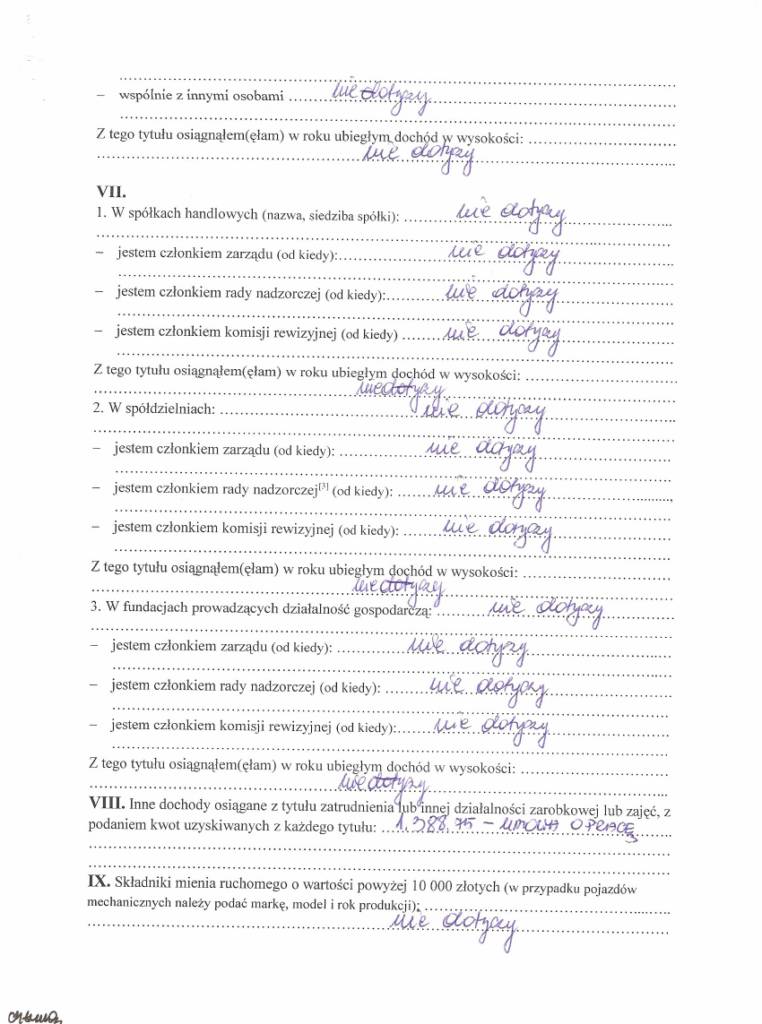 – wspólnie z innymi osobami ........ nie dotyczy
Z tego tytułu osiągnąłem(ęłam) w roku ubiegłym dochód w wysokości: ........
nie dotyczy
VII.
1. W spółkach handlowych (nazwa, siedziba spółki): ........ nie dotyczy
– jestem członkiem zarządu (od kiedy):........ nie dotyczy
– jestem członkiem rady nadzorczej (od kiedy):........ nie dotyczy
– jestem członkiem komisji rewizyjnej (od kiedy) ........ nie dotyczy
Z tego tytułu osiągnąłem(ęłam) w roku ubiegłym dochód w wysokości: ........
nie dotyczy
2. W spółdzielniach: ........ nie dotyczy
– jestem członkiem zarządu (od kiedy): ........ nie dotyczy
– jestem członkiem rady nadzorczej[3] (od kiedy): ........ nie dotyczy
– jestem członkiem komisji rewizyjnej (od kiedy): ........ nie dotyczy
Z tego tytułu osiągnąłem(ęłam) w roku ubiegłym dochód w wysokości: ........
nie dotyczy
3. W fundacjach prowadzących działalność gospodarczą: ........ nie dotyczy
– jestem członkiem zarządu (od kiedy): ........ nie dotyczy
– jestem członkiem rady nadzorczej (od kiedy): ........ nie dotyczy
– jestem członkiem komisji rewizyjnej (od kiedy):........ nie dotyczy
Z tego tytułu osiągnąłem(ęłam) w roku ubiegłym dochód w wysokości: ........
nie dotyczy
VIII. Inne dochody osiągane z tytułu zatrudnienia lub innej działalności zarobkowej lub zajęć, z
podaniem kwot uzyskiwanych z każdego tytułu: 1.388,75 – UMOWA O PRACĘ
IX. Składniki mienia ruchomego o wartości powyżej 10 000 złotych (w przypadku pojazdów
mechanicznych należy podać markę, model i rok produkcji): ........
nie dotyczy